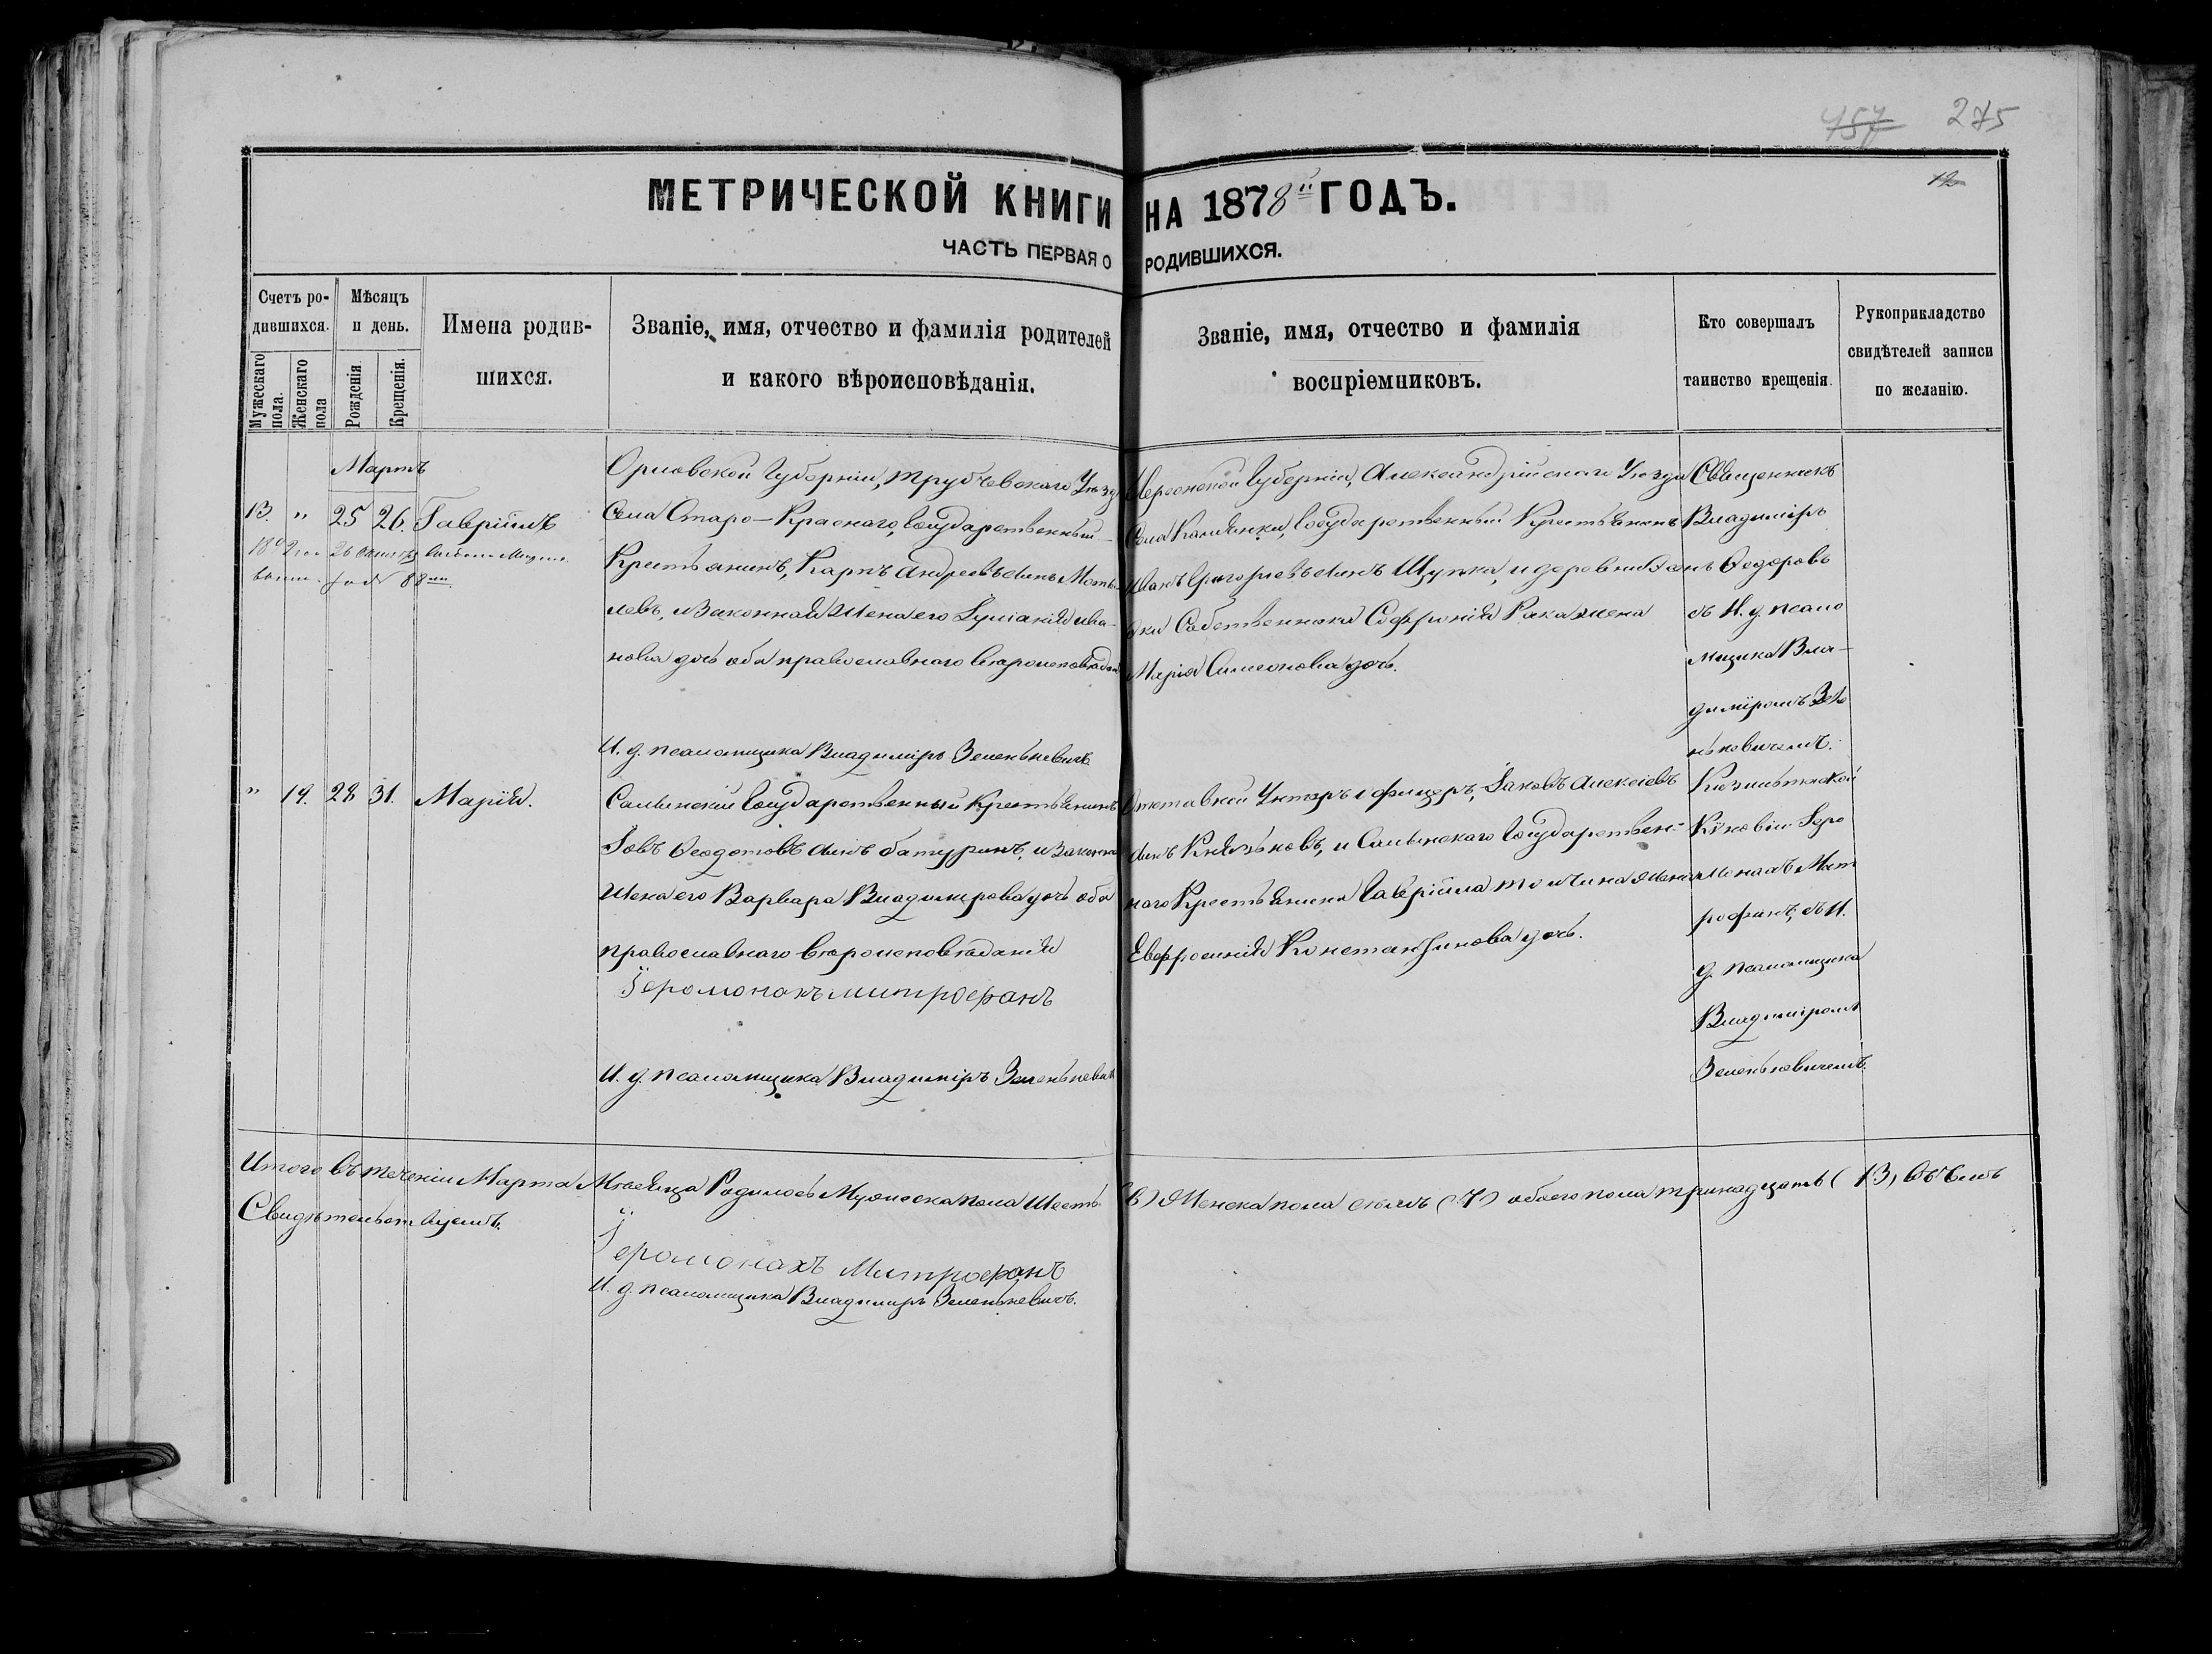 457 275
12
МЕТРИЧЕСКОЙ КНИГИ НА 1878й ГОДЪ.
ЧАСТЬ ПЕРВАЯ О РОДИВШИХСЯ.
Счетъ ро-
дившихся.
Мужескаго пола.
Женскаго пола
Мѣсяцъ
и день.
Рожденія.
Крещенія.
Имена родив-
шихся.
Званіе, имя, отчество и фамилія родителей
и какого вѣроисповѣданія.
Званіе, имя, отчество и фамилія
воспріемниковъ.
Кто совершалъ
таинство крещенія.
Рукоприкладство
свидѣтелей записи
по желанію.
Мартъ
13. " 25 26. Гавріилъ
26
88
Орловской Губерніи, Трубчевскаго Уѣзд
Села Старо-Краснаго, Государственный
Крестьянинъ, Карпъ Андреевъ сынъ
левъ, и Законная Жена его Іуліанія Ива-
нова дочь оба православнаго вѣроисповѣдан
И. д. псаломщика Владиміръ Зеленькевичъ
Херсонской Губерніи, Александрійскаго Уѣзда
Села Каменки, Государственный Крестьянинъ
Иванъ Григорьевъ сынъ Щупка, и деревни
Собственника Софронія Рака жена
Марія Симеонова дочь.
Священникъ
Владиміръ
Ѳедоровъ
съ И. д. псало
мщика Вла-
диміромъ Зеле
нькевичемъ.
" 14. 28 31. Марія.
Салынскій Государственный Крестьянинъ
Іовъ Ѳеодотовъ сынъ Батуринъ, и Законна
Жена его Варвара Владимірова дочь оба
православнаго вѣроисповѣданія
Іеромонахъ Митрофанъ
И. д. псаломщика Владиміръ Зеленькевичъ
Отставной Унтеръ офицеръ, Іаковъ Алексіевъ
сынъ Князьковъ, и Салынскаго Государствен-
наго Крестьянина Гавріила Толчина Жена
Евфросинія Константинова дочь.
Кизилташской
Киновіи Іеро
монахъ Мит
рофанъ, съ И.
д. псаломщика
Владиміромъ
Зеленькевичемъ.
Итого въ теченіи Марта Мѣсяца Родилось Мужеска пола Шесть (6) Женска пола семь (7) обоего пола тринадцать (13) Въ чемъ
Свидѣтельствуемъ.
Іеромонахъ Митрофанъ
И. д. псаломщика Владиміръ Зеленькевичъ.